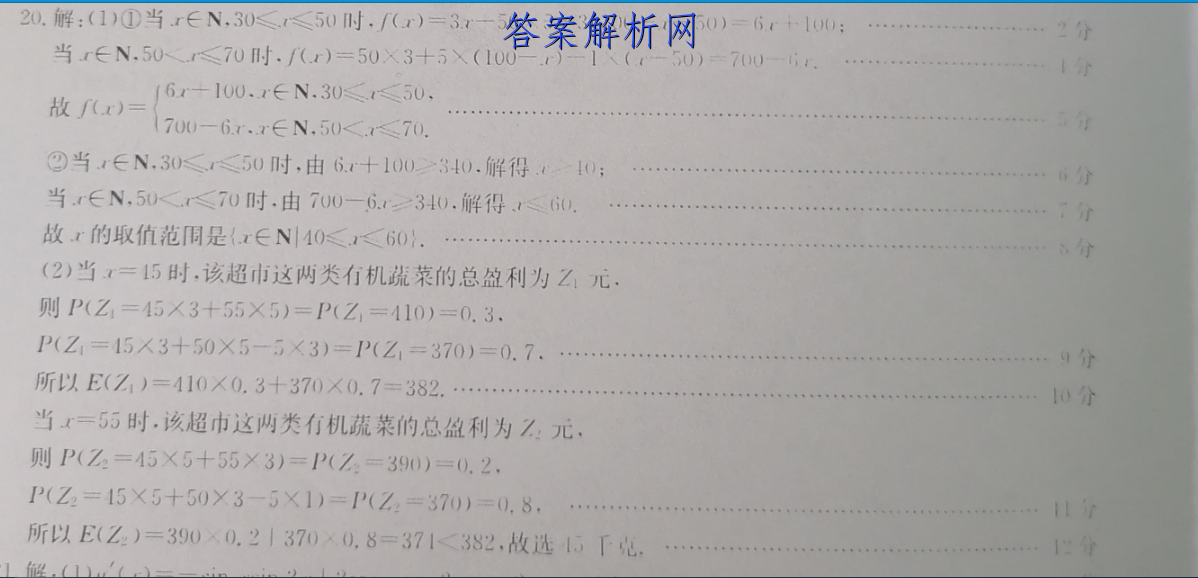 答案解析网
20.解:(1)①当x∈N,30≤x≤50时,f(x)=3x-5 50)=6x+100; 2分
当x∈N,50<x≤70时,f(x)=50×3+5×(100-x)-1×(x-50)=700-6x. 4分
故f(x)={6x+100,x∈N,30≤x≤50, 5分
700-6x,x∈N,50<x≤70.
②当x∈N,30≤x≤50时,由6x+100≥340,解得x≥40; 6分
当x∈N,50<x≤70时,由700-6x≥340,解得x≤60. 7分
故x的取值范围是{x∈N|40≤x≤60}. 8分
(2)当x=45时,该超市这两类有机蔬菜的总盈利为Z₁元,
则P(Z₁=45×3+55×5)=P(Z₁=410)=0.3,
P(Z₁=45×3+50×5-5×3)=P(Z₁=370)=0.7, 9分
所以E(Z₁)=410×0.3+370×0.7=382. 10分
当x=55时,该超市这两类有机蔬菜的总盈利为Z₂元,
则P(Z₂=45×5+55×3)=P(Z₂=390)=0.2,
P(Z₂=45×5+50×3-5×1)=P(Z₂=370)=0.8, 11分
所以E(Z₂)=390×0.2+370×0.8=374<382,故选45千克. 12分
解:(1)